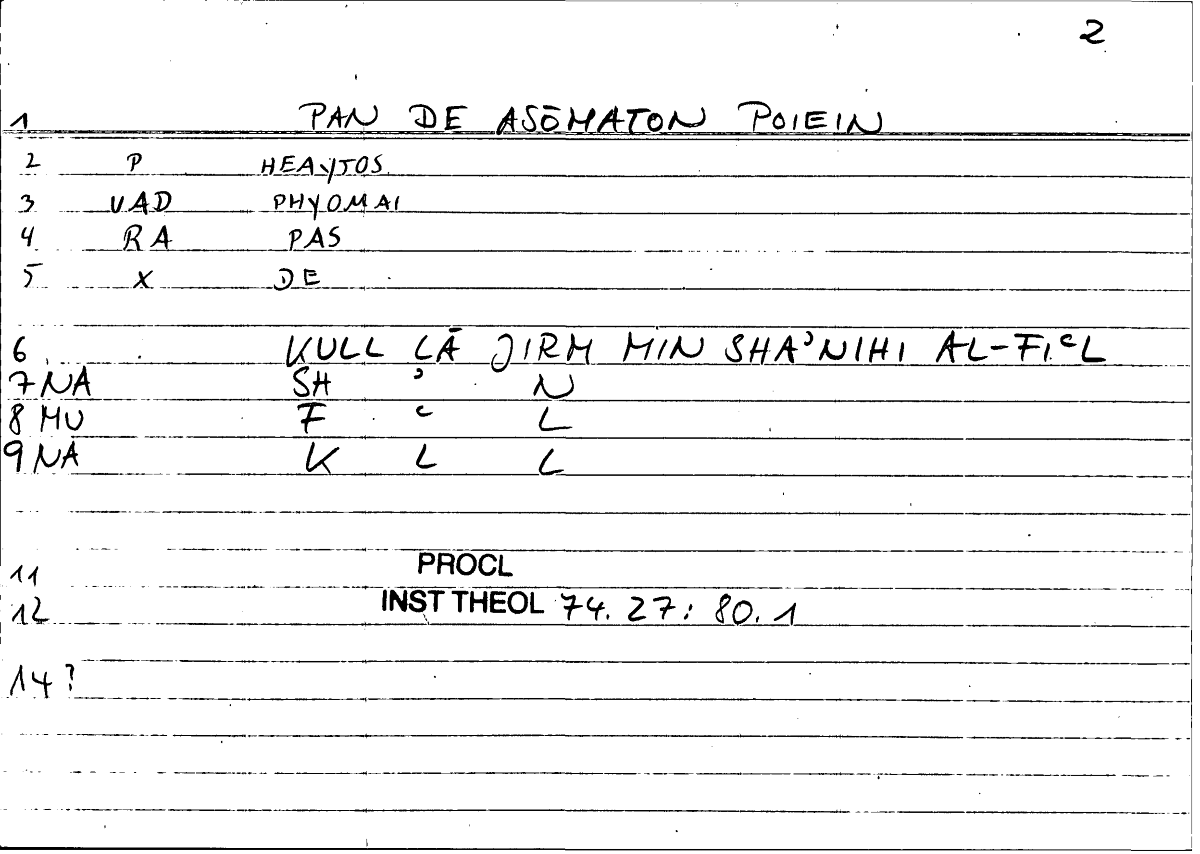 2
1 PAN DE ASŌMATON POIEIN
2 P HEAYTOS
3 VAD PHYOMAI
4 RA PAS
5 X DE
6 KULL LĀ JIRM MIN SHAʾNIHI AL-FIʿL
7 NA SH ʾ N
8 MU F ʿ L
9 NA K L L
11 PROCL
12 INST THEOL 74. 27: 80. 1
14 ?